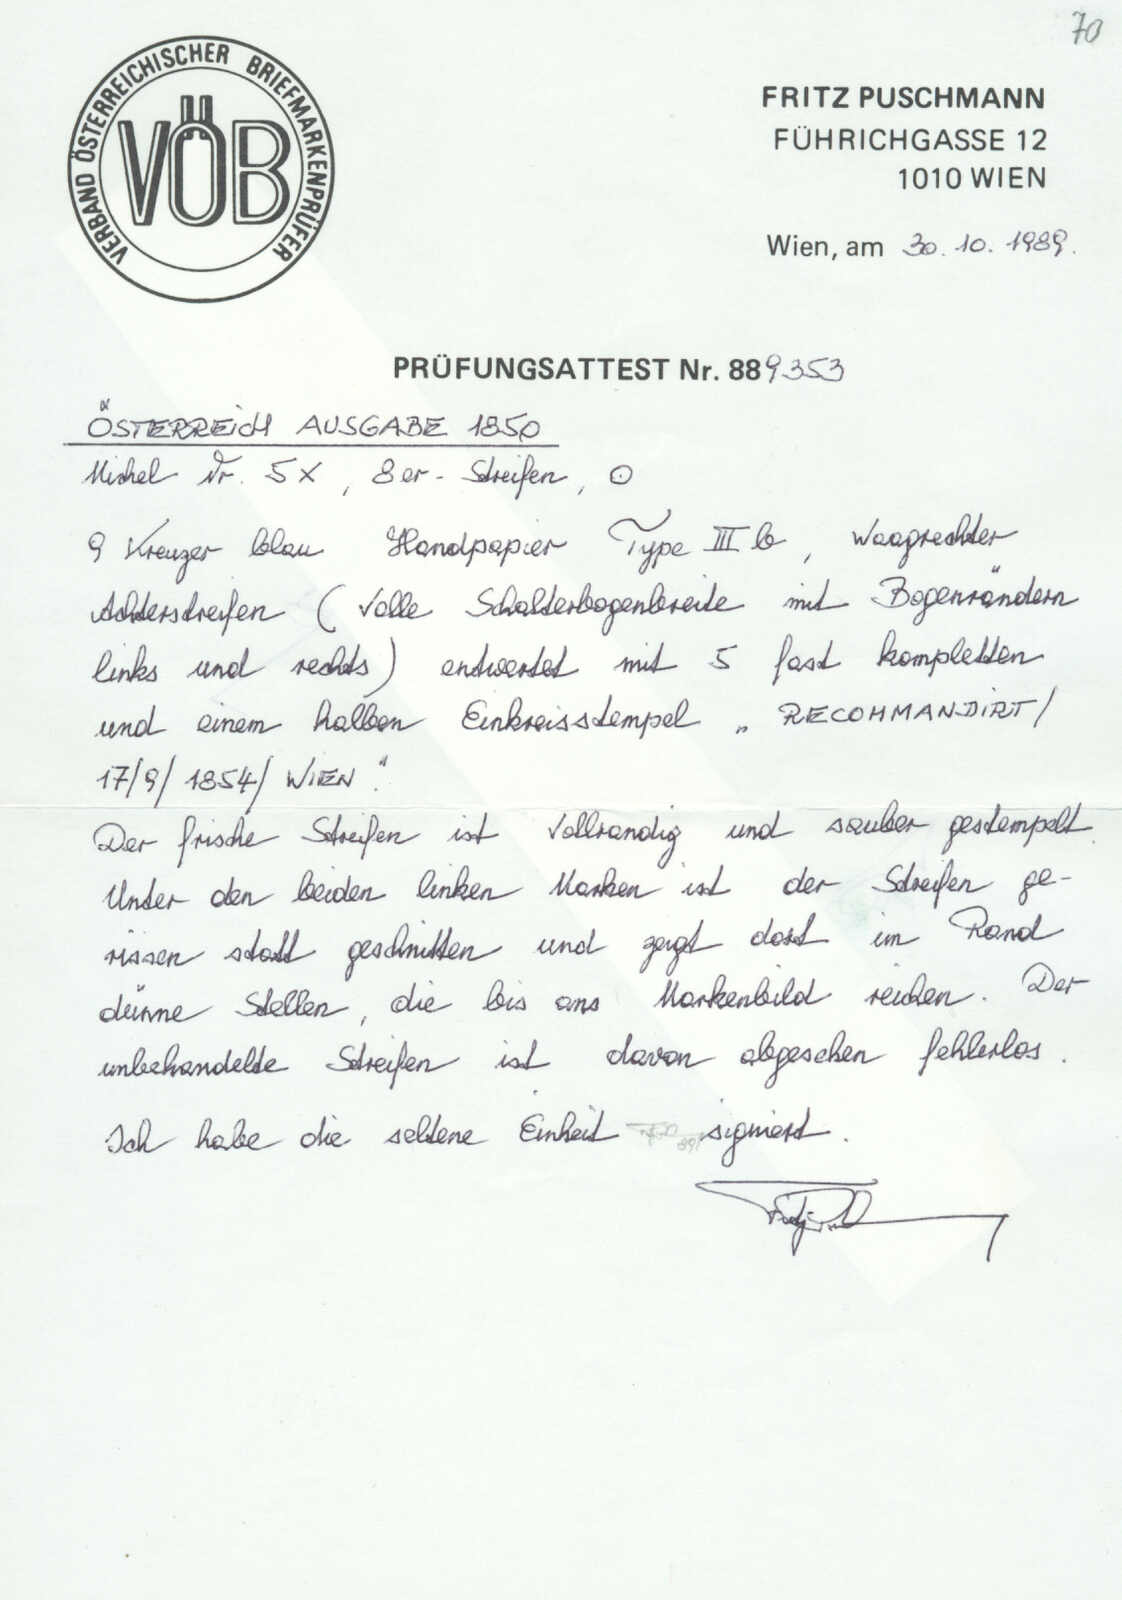 70
VERBAND ÖSTERREICHISCHER BRIEFMARKENPRÜFER
VÖB
FRITZ PUSCHMANN
FÜHRICHGASSE 12
1010 WIEN
Wien, am 30. 10. 1989.
PRÜFUNGSATTEST Nr. 889353
ÖSTERREICH AUSGABE 1850
Michel Nr. 5X, 8er-Streifen, ⊙
9 Kreuzer blau Handpapier Type III b, Waagrechter
Achterstreifen (volle Schalterbogenbreite mit Bogenrändern
links und rechts) entwertet mit 5 fast kompletten
und einem halben Einkreisstempel „RECOMMANDIRT/
17/9/1854/WIEN".
Der frische Streifen ist vollrandig und sauber gestempelt.
Unter den beiden linken Marken ist der Streifen ge-
rissen statt geschnitten und zeigt dort im Rand
dünne Stellen, die bis ans Markenbild reichen. Der
unbehandelte Streifen ist davon abgesehen fehlerlos.
Ich habe die seltene Einheit signiert.